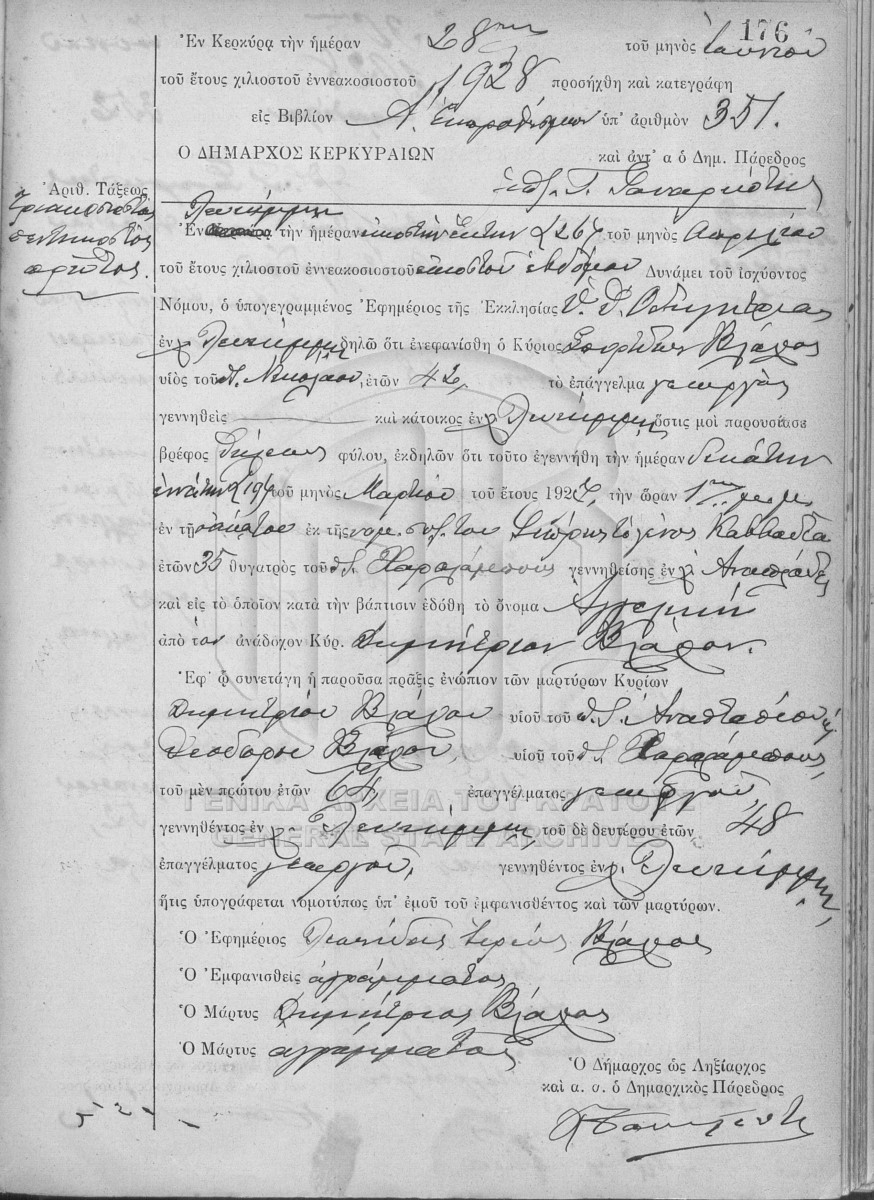 176
Ἐν Κερκύρᾳ τὴν ἡμέραν 28ην τοῦ μηνὸς Ἰουνίου
τοῦ ἔτους χιλιοστοῦ ἐννεακοσιοστοῦ 1928 προσήχθη καὶ κατεγράφη
εἰς Βιβλίον Α. ὑπ' ἀριθμὸν 351.
Ο ΔΗΜΑΡΧΟΣ ΚΕΡΚΥΡΑΙΩΝ καὶ ἀντ' α ὁ Δημ. Πάρεδρος
Ἀριθ. Τάξεως
τριακοστος
πεντηκοστὸς
πρῶτος.
Λευκίμμῃ
Ἐν τὴν ἡμέραν εἰκοστὴν ἕκτην (26) τοῦ μηνὸς Απριλίου
τοῦ ἔτους χιλιοστοῦ ἐννεακοσιοστοῦ εἰκοστοῦ ἑβδόμου Δυνάμει τοῦ ἰσχύοντος
Νόμου, ὁ ὑπογεγραμμένος Ἐφημέριος τῆς Ἐκκλησίας Ὑ. Θ. Οδηγητρίας
ἐν Λευκίμμῃ δηλῶ ὅτι ἐνεφανίσθη ὁ Κύριος Σπυρίδων Βλάχος
υἱὸς τοῦ π. Νικολάου, ἐτῶν 42, τὸ ἐπάγγελμα γεωργὸς
γεννηθεὶς καὶ κάτοικος ἐν χ Λευκίμμης ὅστις μοὶ παρουσίασε
βρέφος θήλεως φύλου, ἐκδηλῶν ὅτι τοῦτο ἐγεννήθη τὴν ἡμέραν δεκάτην
ἐννάτην (19) τοῦ μηνὸς Μαρτίου τοῦ ἔτους 1927, τὴν ὥραν 1ην μ.μ.
ἐν τῇ ἐκ τῆς νομ. συζ. του τὸ γένος Καββαδία
ἐτῶν 35 θυγατρὸς τοῦ π. Χαραλάμπους γεννηθείσης ἐν χ Αναπλάδες
καὶ εἰς τὸ ὁποῖον κατὰ τὴν βάπτισιν ἐδόθη τὸ ὄνομα Αγγελικὴ
ἀπὸ τὸν ἀνάδοχον Κύρ. Δημήτριον Βλάχον.
Ἐφ' ᾧ συνετάγη ἡ παροῦσα πρᾶξις ἐνώπιον τῶν μαρτύρων Κυρίων
Δημητρίου Βλάχου υἱοῦ τοῦ π. Ἀναστασίου κ
Θεοδώρου Βλάχου, υἱοῦ τοῦ π. Χαραλάμπους,
τοῦ μὲν πρώτου ἐτῶν 64, ἐπαγγέλματος γεωργοῦ,
γεννηθέντος ἐν χ. Λευκίμμης τοῦ δὲ δευτέρου ἐτῶν 48
ἐπαγγέλματος γεωργοῦ, γεννηθέντος ἐν χ. Λευκίμμης,
ἥτις ὑπογράφεται νομοτύπως ὑπ' ἐμοῦ τοῦ ἐμφανισθέντος καὶ τῶν μαρτύρων.
Ὁ Ἐφημέριος ἱερεὺς Βλάχος
Ὁ Ἐμφανισθεὶς ἀγράμματος
Ὁ Μάρτυς Δημήτριος Βλάχος
Ὁ Μάρτυς αγράμματος
Ὁ Δήμαρχος ὡς Ληξίαρχος
καὶ α. α. ὁ Δημαρχικὸς Πάρεδρος
ΓΕΝΙΚΑ ΑΡΧΕΙΑ ΤΟΥ ΚΡΑΤΟΥΣ
GENERAL STATE ARCHIVES